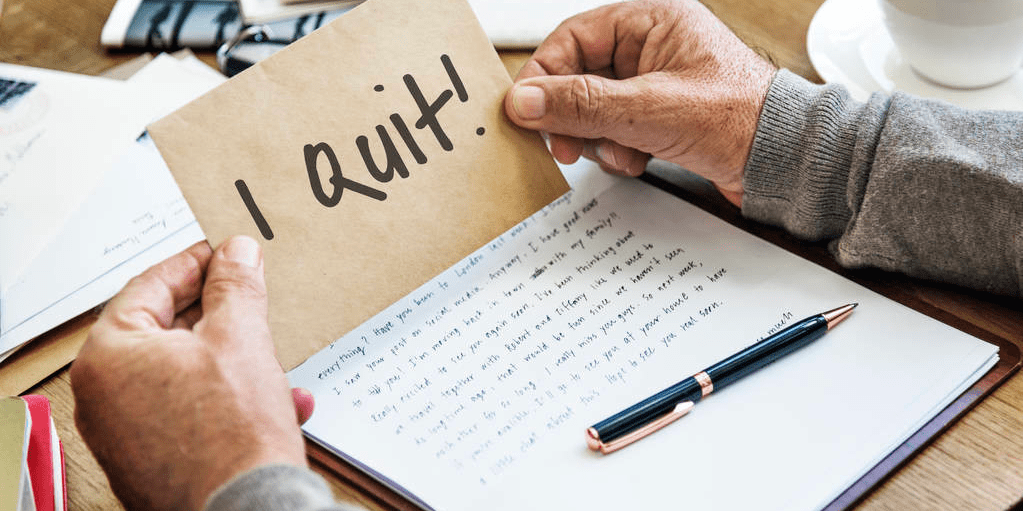 I Quit!
everything? Have you been to London last week? I thought
I saw your post on social media. Anyway, I have good news
to tell you! I'm moving back in town with my family!!
Really excited to see you again soon. I've been thinking about
a travel together with Robert and Tiffany like we used to
do longtime ago. that would be fun since we haven't seen
each other for so long. I really miss you guys so next week,
if you're available. I'll to see you at your house to have
a little chat about this. Hope to see you real soon.
much